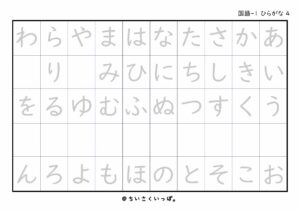 国語-1 ひらがな 4
あいうお
かきくこ
さしすそ
たちつと
なにぬの
はひふほ
まみむも
やゆよ
らりるろ
わをん
@ちいさくいっぽ。